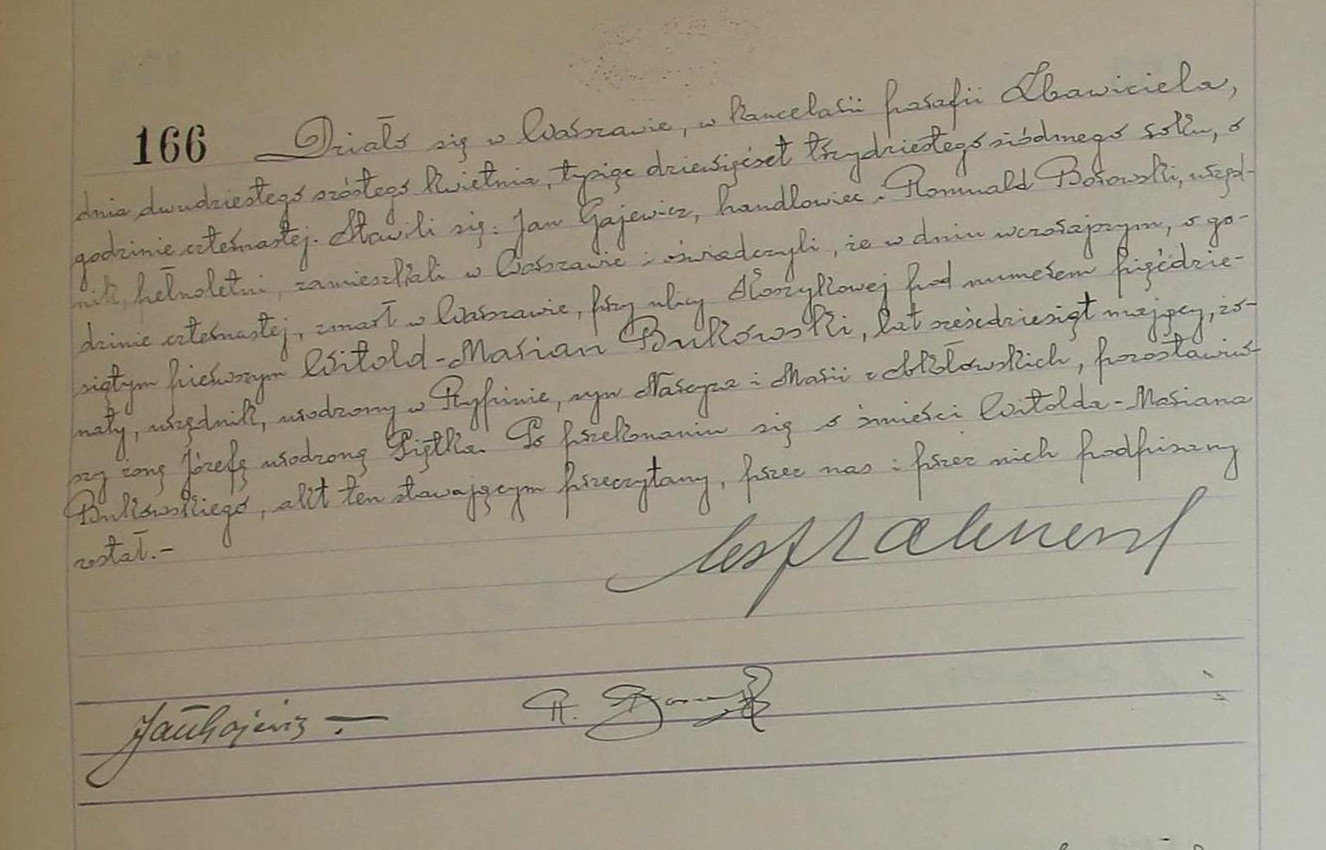 166 Działo się w Warszawie, w kancelarii parafii Zbawiciela,
dnia dwudziestego szóstego kwietnia, tysiąc dziewięćset trzydziestego siódmego roku, o
godzinie czternastej. Stawili się: Jan Gajewicz, handlowiec i Romuald Borowski, urzęd-
nik, pełnoletni, zamieszkali w Warszawie i oświadczyli, że w dniu wczorajszym, o go-
dzinie czternastej, zmarł w Warszawie, przy ulicy Koszykowej pod numerem pięćdzie-
siątym pierwszym Witold-Marian Bukowski, lat sześćdziesiąt mający, żo-
naty, urzędnik, urodzony w Rypinie, syn Narcyza i Marii z , pozostawiw-
szy żonę Józefę urodzoną Piętka. Po przekonaniu się o śmierci Witolda-Mariana
Bukowskiego, akt ten stawającym przeczytany, przez nas i przez nich podpisany
został.-
Jan Gajewicz -
R.